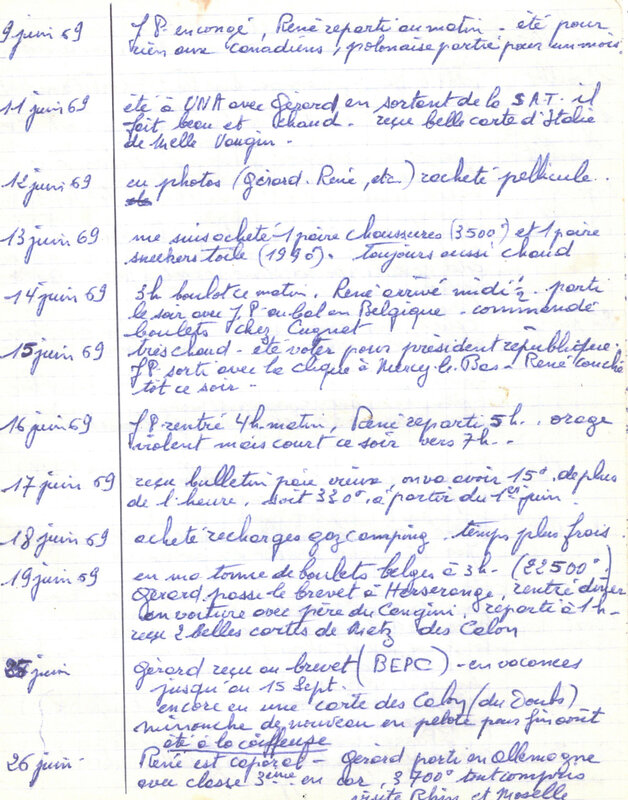 9 juin 69 JP. en congé, René reparti au matin - été pour
rien aux Canadiens, polonaise partie pour un mois.
11 juin 69 été à UNA avec Gérard en sortant de la SAT. il
fait beau et chaud - reçu belle carte d'Italie
de Melle Vaugin -
12 juin 69 eu photos (Gérard. René, etc.) racheté pellicule.
13 juin 69 me suis acheté 1 paire chaussures (3500°) et 1 paire
sneekers toile (1990°). toujours aussi chaud
14 juin 69 3h boulot ce matin. René arrivé midi ½. parti
le soir avec JP. au bal en Belgique - commandé
boulets chez Cugnet
15 juin 69 très chaud - été voter pour président république.
JP. sorti avec la clique à Mercy-le-Bas - René couché
tôt ce soir -
16 juin 69 JP. rentré 4h. matin, René reparti 5h. . orage
violent mais court ce soir vers 7h. -
17 juin 69 reçu bulletin paie vieux, on va avoir 15°. de plus
de l'heure. soit 330°. à partir du 1er juin.
18 juin 69 acheté recharges gaz camping. temps plus frais.
19 juin 69 eu ma tonne de boulets belges à 3h - (22500°.)
Gérard passe le brevet à Herserange, rentré dîner
en voiture avec père du Cangini, reparti à 1h -
reçu 2 belles cartes de Metz des Colon
25 juin Gérard reçu au brevet (BEPC) - en vacances
jusqu'au 15 Sept.
encore eu une carte des Colon (du Doubs)
minouche de nouveau en pelote pour fin août
été à la coiffeuse
26 juin - René est caporal - Gérard parti en Allemagne
avec classe 3ème en car, 3700° tout compris
visite Rhin et Moselle